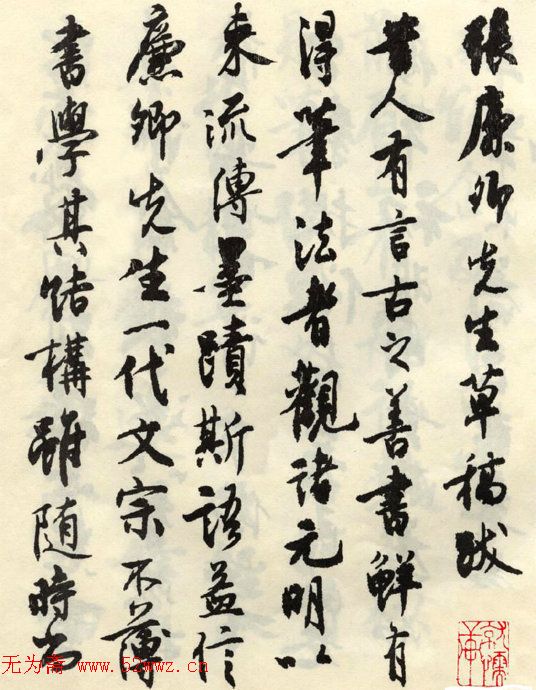 張廉卿先生草稿跋
昔人有言古之善書鮮有
得筆法者觀諸元明以
來流傳墨蹟斯語益信
廉卿先生一代文宗不薄
書學其結構雖随時尚
无为斋 www.52wwz.cn